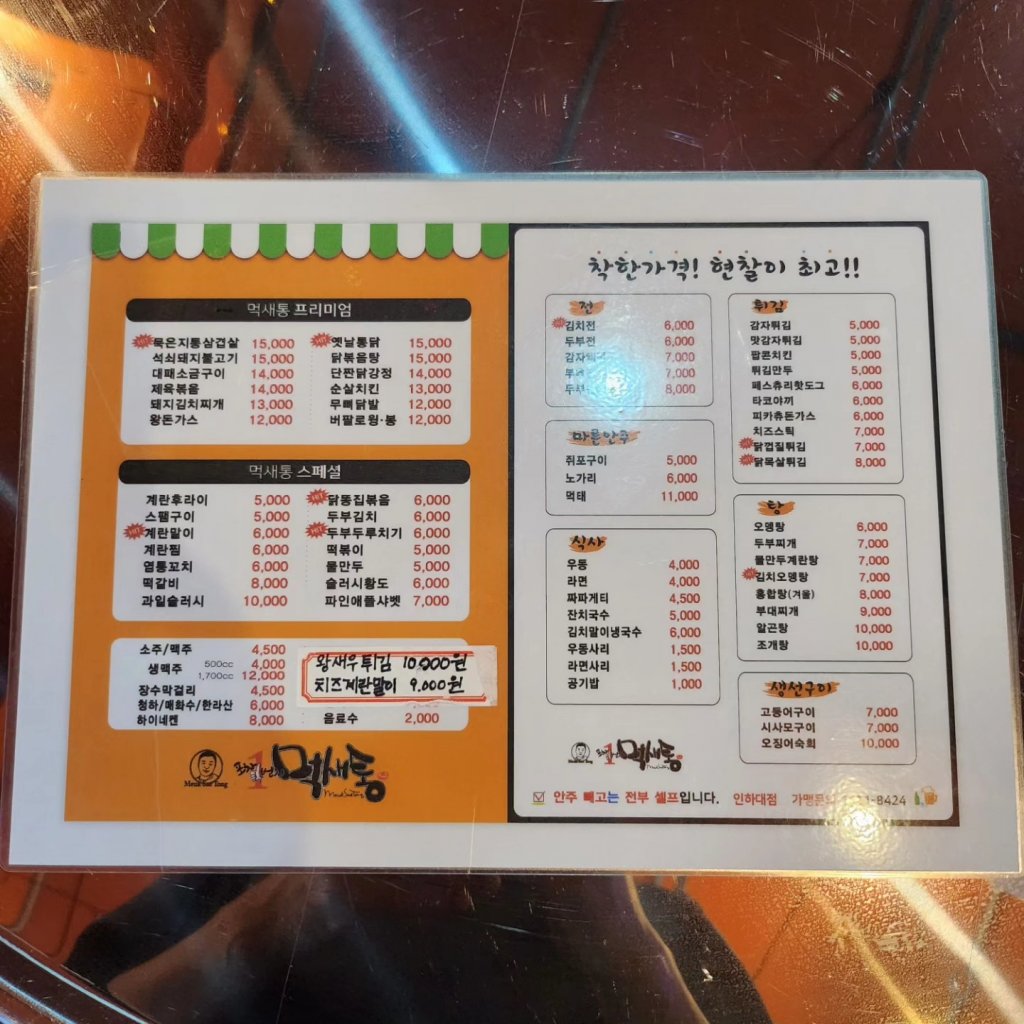 먹새통 프리미엄
묵은지통삼겹살 15,000
석쇠돼지불고기 15,000
대패소금구이 14,000
제육볶음 14,000
돼지김치찌개 13,000
왕돈가스 12,000
옛날통닭 15,000
닭볶음탕 15,000
단짠닭강정 14,000
순살치킨 13,000
무뼈닭발 12,000
버팔로윙·봉 12,000
먹새통 스페셜
계란후라이 5,000
스팸구이 5,000
계란말이 6,000
계란찜 6,000
염통꼬치 6,000
떡갈비 8,000
과일슬러시 10,000
닭똥집볶음 6,000
두부김치 6,000
두부두루치기 6,000
떡볶이 5,000
물만두 5,000
슬러시황도 6,000
파인애플샤벳 7,000
소주/맥주 4,500
생맥주 500cc 4,000
1,700cc 12,000
장수막걸리 4,500
청하/매화수/한라산 6,000
하이네켄 8,000
왕새우튀김 10,000원
치즈계란말이 9,000원
음료수 2,000
먹새통
착한가격! 현찰이 최고!!
전
김치전 6,000
두부전 6,000
7,000
7,000
8,000
마른안주
쥐포구이 5,000
노가리 6,000
먹태 11,000
식사
우동 4,000
라면 4,000
짜파게티 4,500
잔치국수 5,000
김치말이냉국수 6,000
우동사리 1,500
라면사리 1,500
공기밥 1,000
튀김
감자튀김 5,000
맛감자튀김 5,000
팝콘치킨 5,000
튀김만두 5,000
페스츄리핫도그 6,000
타코야끼 6,000
피카츄돈가스 6,000
치즈스틱 7,000
닭껍질튀김 7,000
닭목살튀김 8,000
탕
오뎅탕 6,000
두부찌개 7,000
물만두계란탕 7,000
김치오뎅탕 7,000
홍합탕(겨울) 8,000
부대찌개 9,000
알곤탕 10,000
조개탕 10,000
생선구이
고등어구이 7,000
시사모구이 7,000
오징어숙회 10,000
먹새통
안주 빼고는 전부 셀프입니다. 인하대점 가맹문의 8424